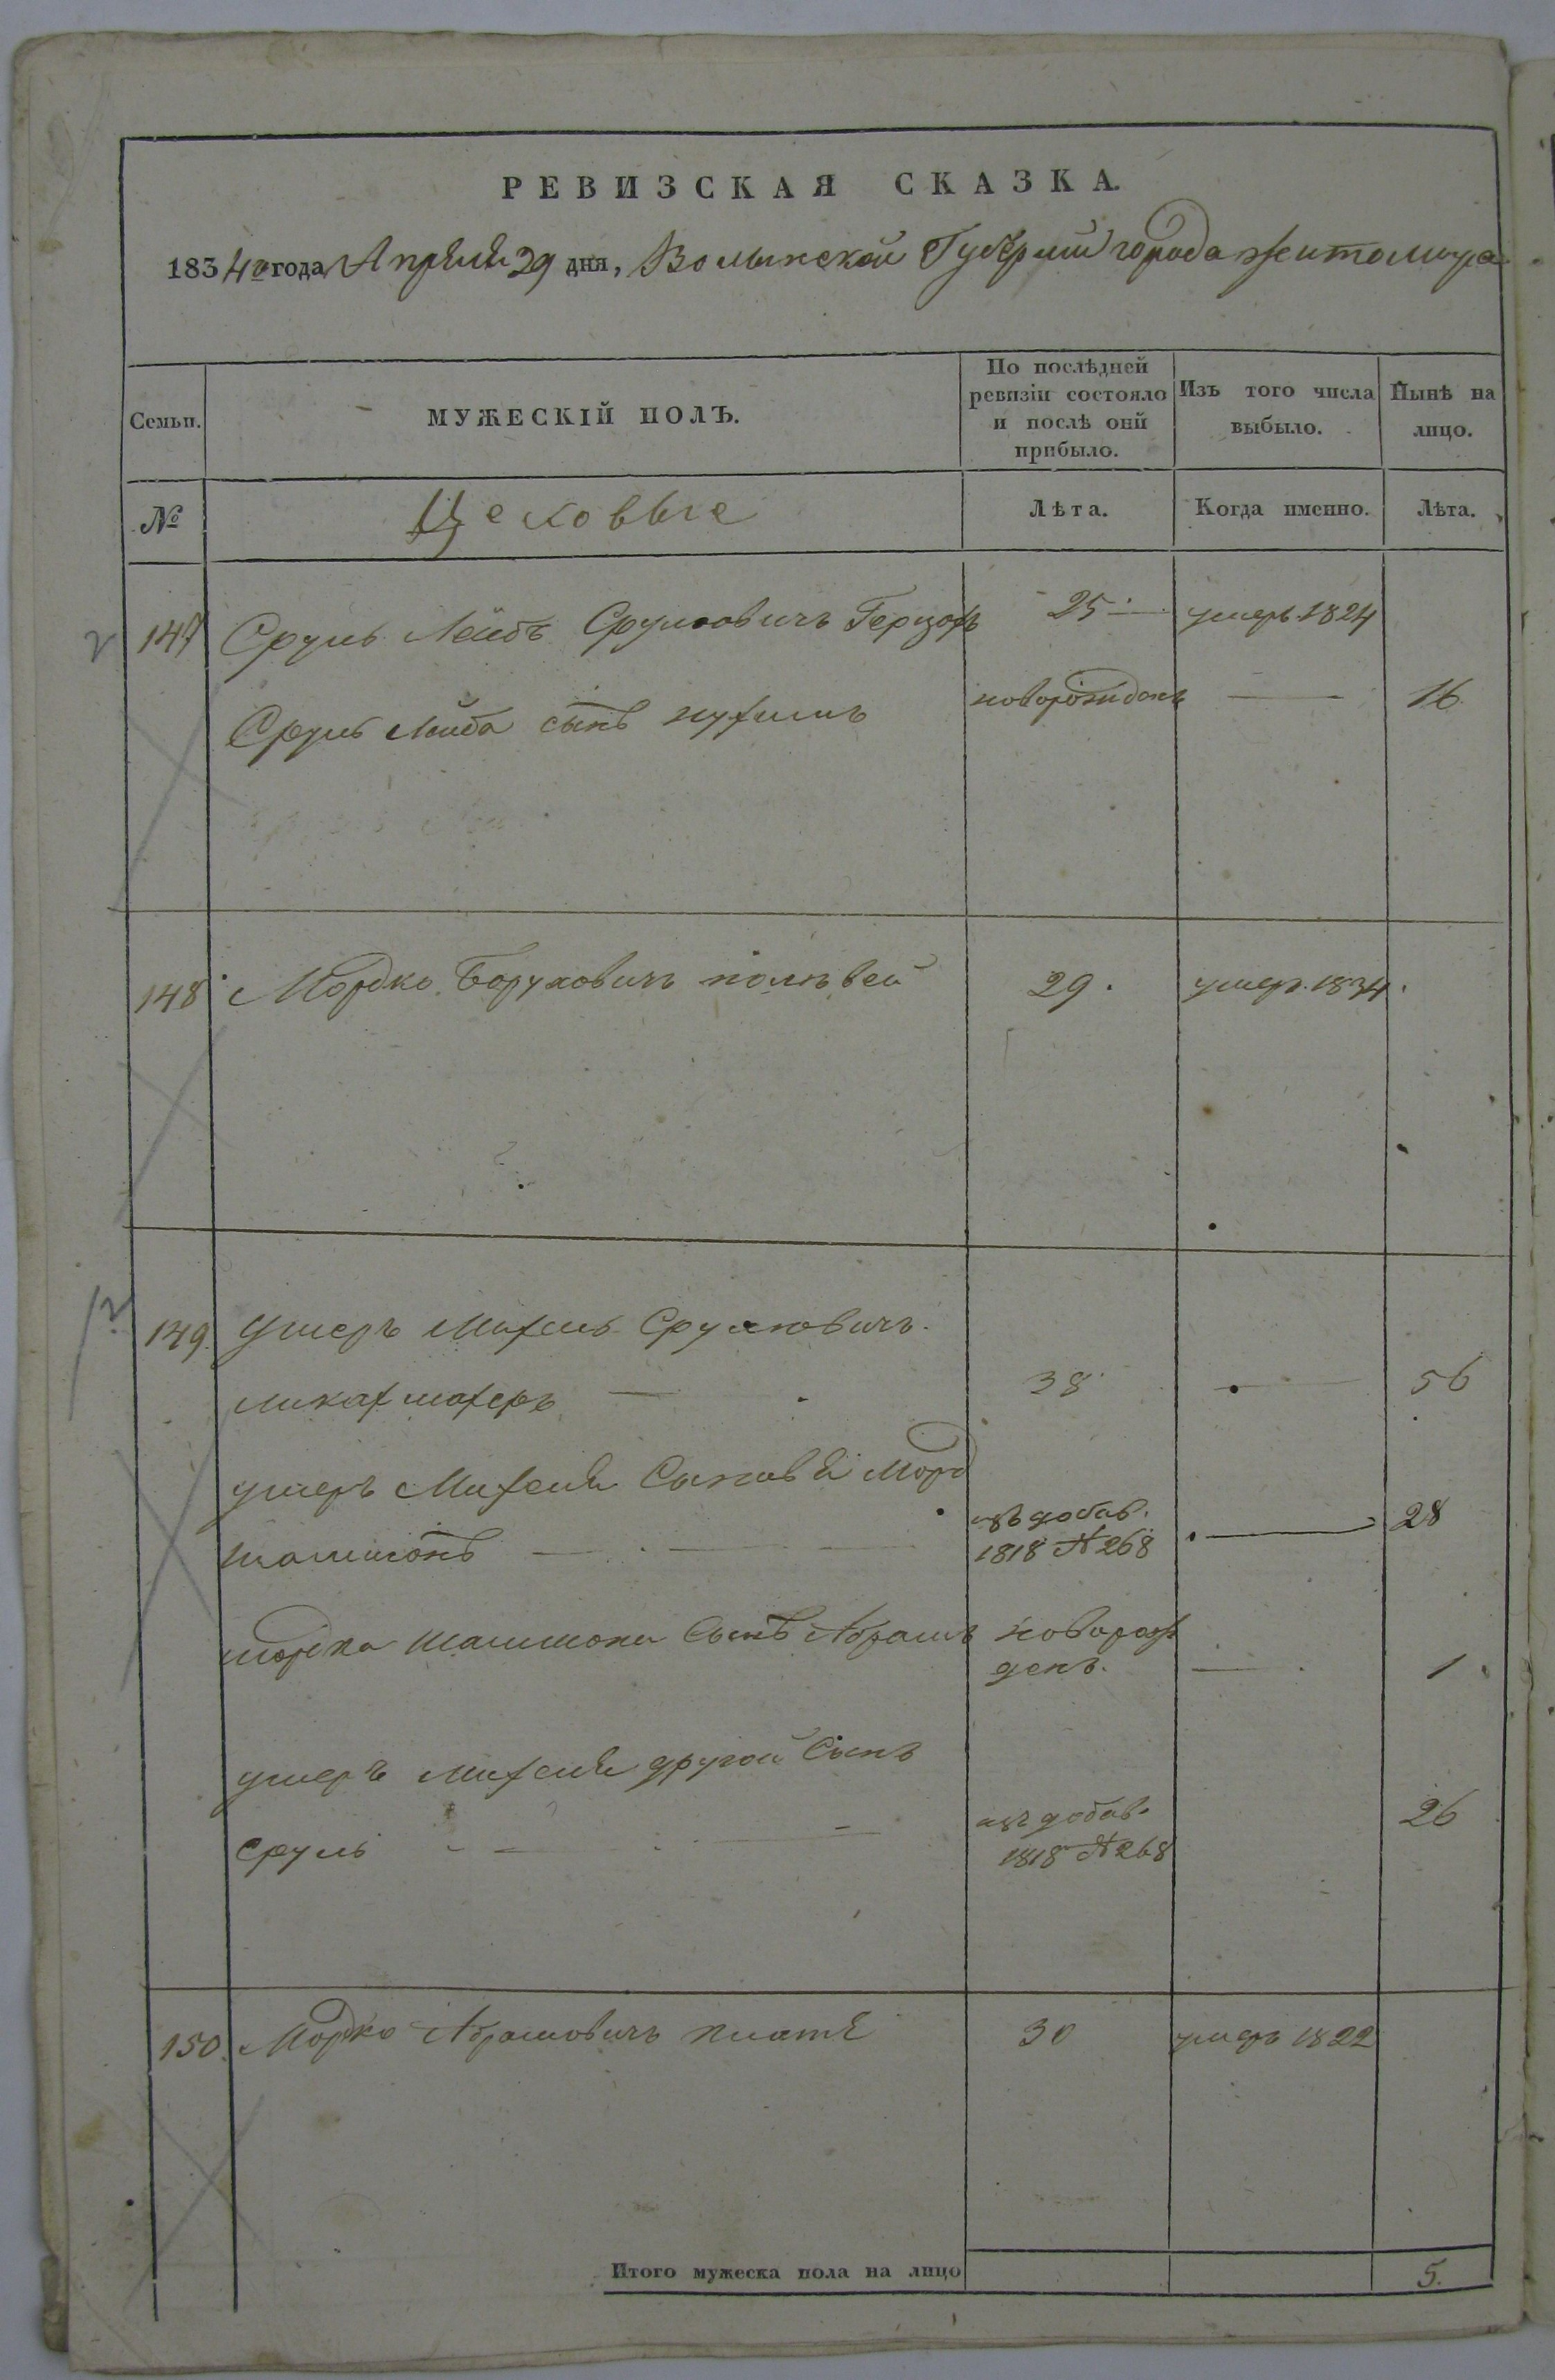 РЕВИЗСКАЯ СКАЗКА.
1834го года Апреля 29 дня, Волынской Губернии города Житомира
Семьи. МУЖЕСКІЙ ПОЛЪ. По послѣдней ревизіи состояло и послѣ оній прибыло. Изъ того числа выбыло. Нынѣ на лицо.
№ Цеховые Лѣта. Когда именно. Лѣта.
147 Сруль Лейбъ Срулевичъ 25 умеръ 1824
Сруль Лейба сынъ Нухимъ новорожденъ 16
148 Мордко Борухович 29. умеръ 1834.
149. Ушеръ Михель Срулевичъ.
38 56
Ушеръ Михеля Сыновья Морд
изъ добав.
Шлимонъ 1818 № 268 28
Мордка Шлимона Сынъ Абрамъ новорож
денъ. 1
Ушеръ Михеля другой Сынъ
изъ добав.
Сруль 1818 № 268 26
150. Мордко Абрамовичъ 30 умеръ 1822
Итого мужеска пола на лицо 5.